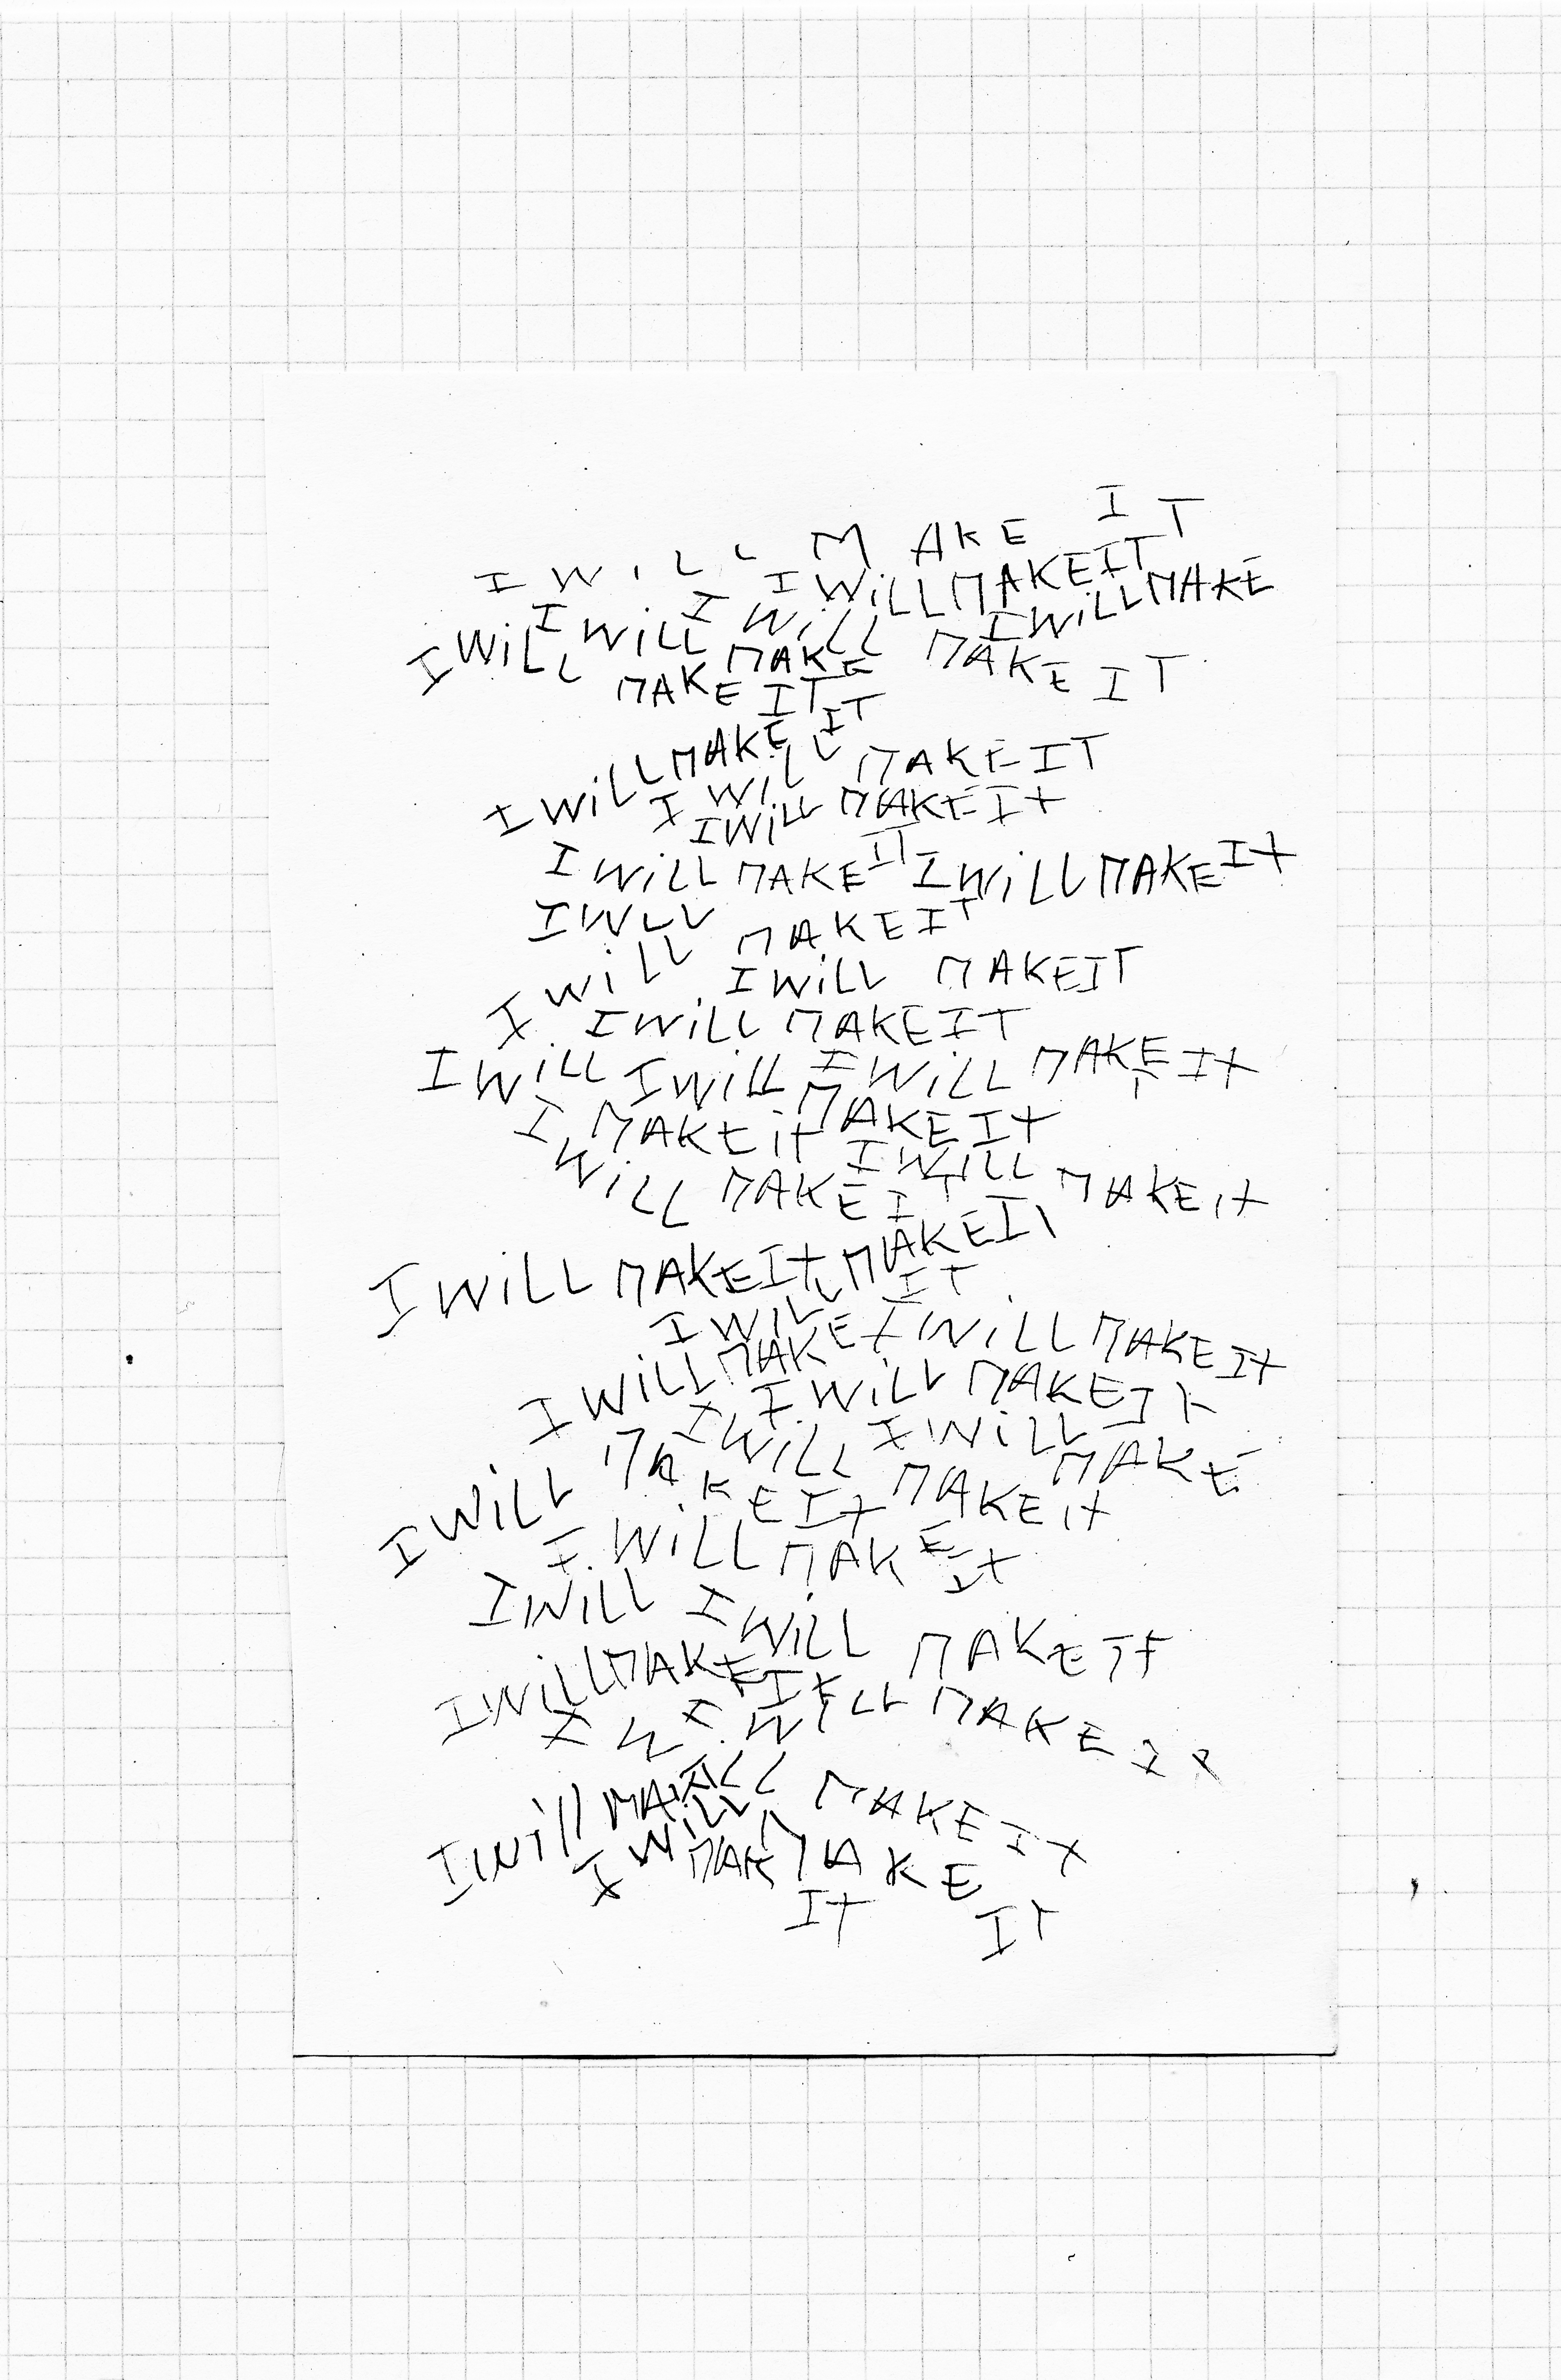 I WiLL MAKE IT
I WiLL MAKE IT
I WiLL I WiLL I WiLL I WiLL MAKE
MAKE MAKE MAKE IT
IT
I WiLL MAKE IT
I WiLL MAKE IT
I WiLL MAKE IT
I WiLL MAKE IT I WiLL MAKE IT
I WLL MAKE IT
I WiLL I WiLL MAKE IT
I WiLL MAKE IT
I WiLL I WiLL I WiLL MAKE IT
I MAKE iT MAKE IT
WiLL MAKE IT I WILL MAKE IT
I WiLL MAKE IT MAKE IT
I WILL IT
I WiLL MAKE I WiLL MAKE IT
I WiLL MAKE IT
I WiLL I WiLL MAKE
I WiLL MAKE IT MAKE IT
I WiLL MAKE IT
I WILL I WiLL MAKE IT
I WiLL MAKE IT
I WILL MAKE IT
I Will MAKE IT
I WiLL MAKE
MAK IT
IT